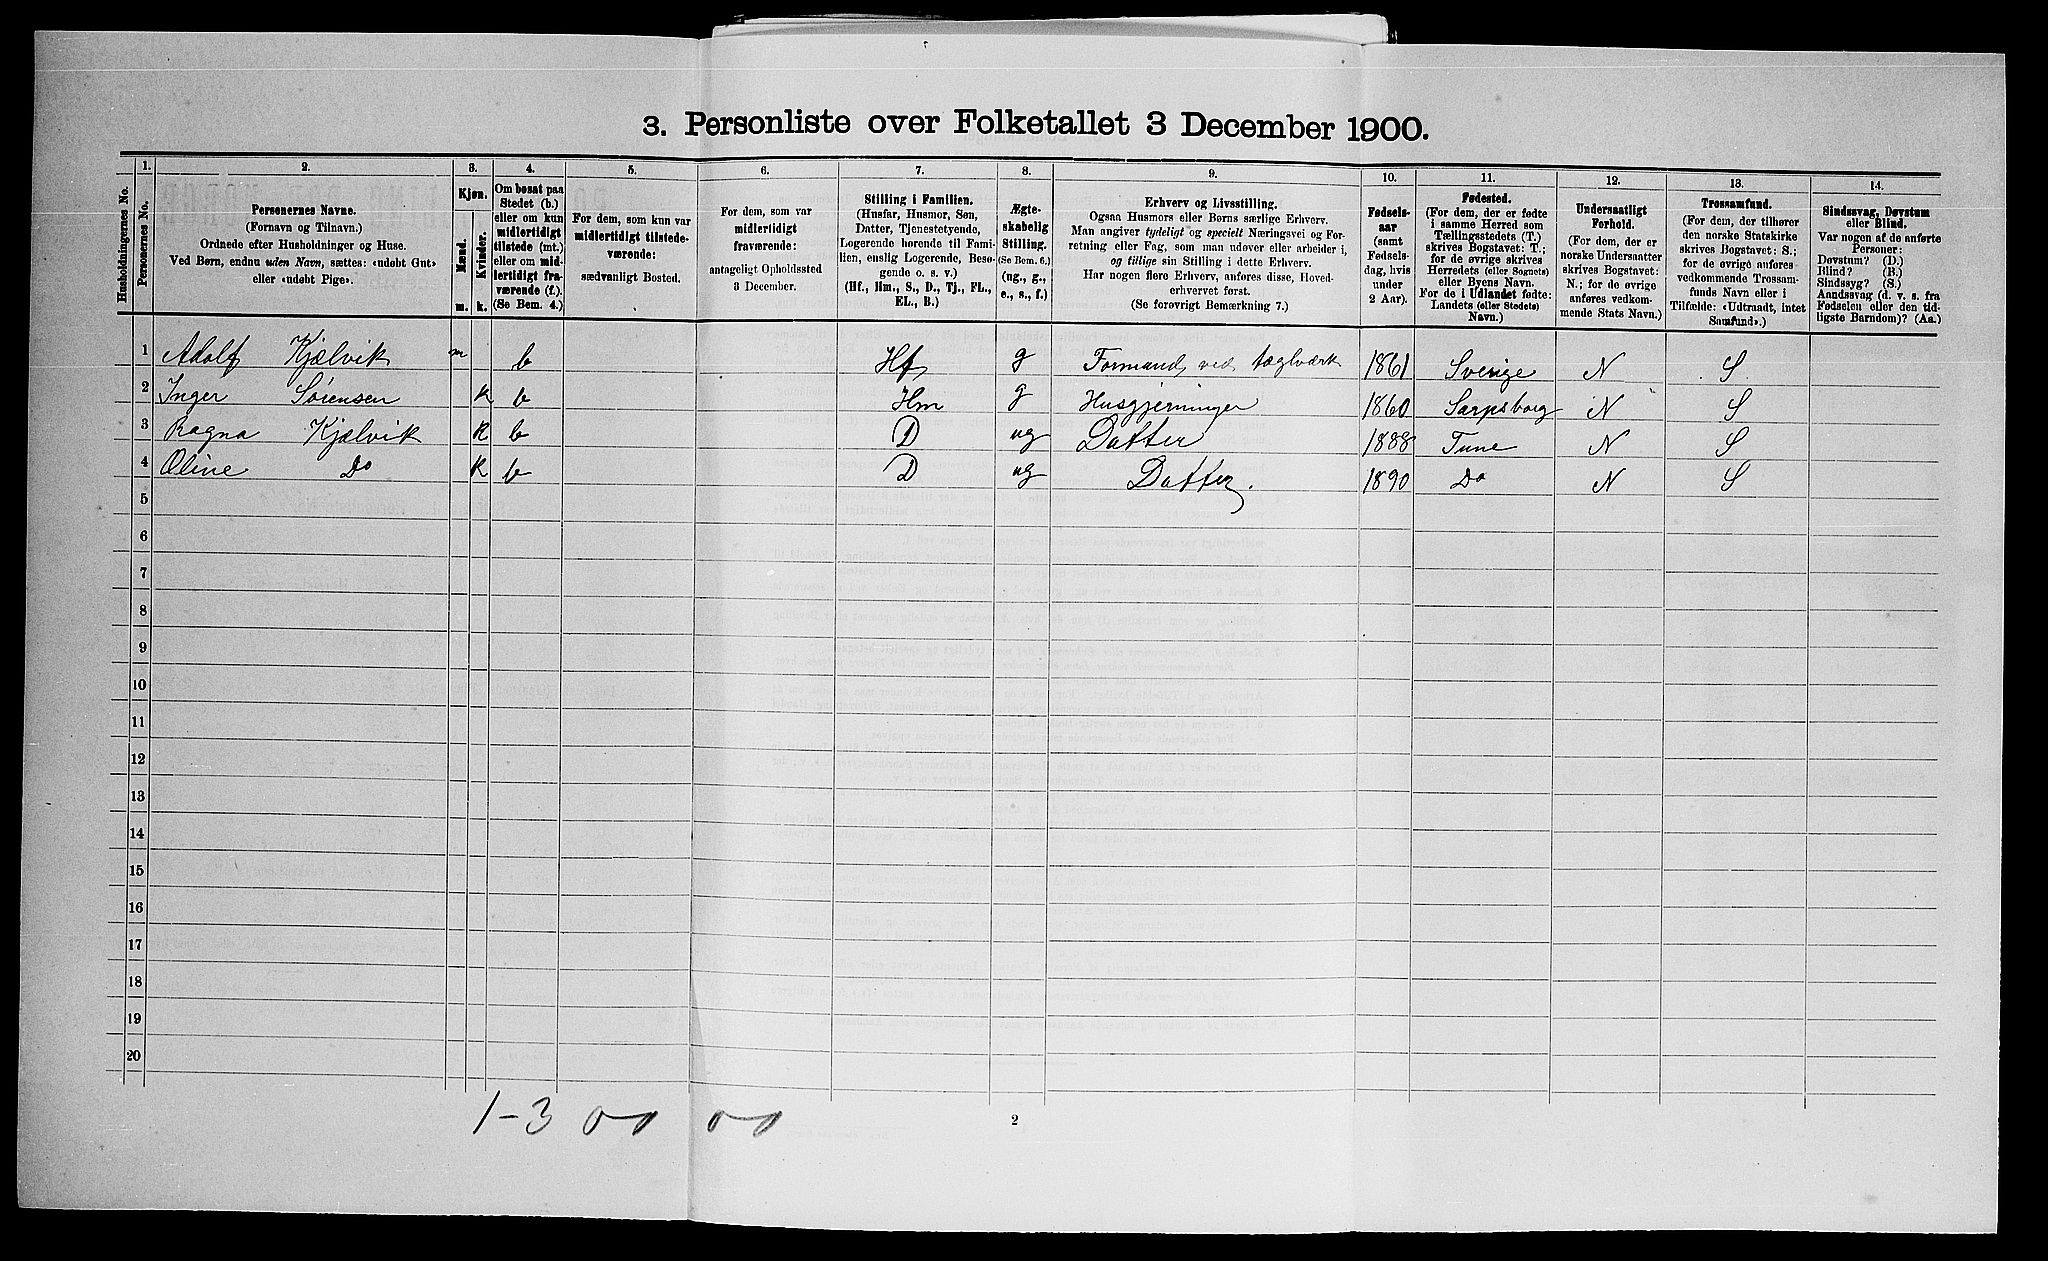 3. Personliste over Folketallet 3 December 1900.
Husholdningernes No.
1.
Personernes No.
2.
Personernes Navne.
(Fornavn og Tilnavn.)
Ordnede efter Husholdninger og Huse.
Ved Børn, endnu uden Navn, sættes: «udøbt Gut»
eller «udøbt Pige».
3.
Kjøn.
Mænd.
m.
Kvinder.
k.
4.
Om bosat paa
Stedet (b.)
eller om kun
midlertidigt
tilstede (mt.)
eller om mid-
lertidigt fra-
værende (f.)
(Se Bem. 4.)
5.
For dem, som kun var
midlertidigt tilstede-
værende:
sædvanligt Bosted.
6.
For dem, som var
midlertidigt
fraværende:
antageligt Opholdssted
3 December.
7.
Stilling i Familien.
(Husfar, Husmor, Søn,
Datter, Tjenestetyende,
Logerende hørende til Fami-
lien, enslig Logerende, Besø-
gende o. s. v.)
(Hf., Hm., S., D., Tj., FL.,
EL., B.)
8.
Ægte-
skabelig
Stilling.
(Se Bem. 6.)
(ug., g.,
e., s., f.)
9.
Erhverv og Livsstilling.
Ogsaa Husmors eller Børns særlige Erhverv.
Man angiver tydeligt og specielt Næringsvei og For-
retning eller Fag, som man udøver eller arbeider i,
og tillige sin Stilling i dette Erhverv.
Har nogen flere Erhverv, anføres disse, Hoved-
erhvervet først.
(Se forøvrigt Bemærkning 7.)
10.
Fødsels-
aar
(samt
Fødsels-
dag, hvis
under
2 Aar).
11.
Fødested.
(For dem, der er fødte
i samme Herred som
Tællingsstedets (T.)
skrives Bogstavet: T.;
for de øvrige skrives
Herredets (eller Sognets)
eller Byens Navn.
For de i Udlandet fødte:
Landets (eller Stedets)
Navn.)
12.
Undersaatligt
Forhold.
(For dem, der er
norske Undersaatter
skrives Bogstavet:
N.; for de øvrige
anføres vedkom-
mende Stats Navn.)
13.
Trossamfund.
(For dem, der tilhører
den norske Statskirke
skrives Bogstavet: S.;
for de øvrige anføres
vedkommende Trossam-
funds Navn eller i
Tilfælde: «Udtraadt, intet
Samfund».)
14.
Sindssvag, Døvstum
eller Blind.
Var nogen af de anførte
Personer:
Døvstum? (D.)
Blind? (B.)
Sindssyg? (S.)
Aandssvag (d. v. s. fra
Fødselen eller den tid-
ligste Barndom)? (Aa.)
1 Adolf Kjølvik m b Hf g Formand ved taglværk 1861 Sverige N S
2 Inger Sørensen k b Hm g Husgjerninger 1860 Sarpsborg N S
3 Ragna Kjølvik k b D ug Datter 1888 Tune N S
4 Oline Do k b D ug Datter. 1890 Do N S
5
6
7
8
9
10
11
12
13
14
15
16
17
18
19
20
1-3
2